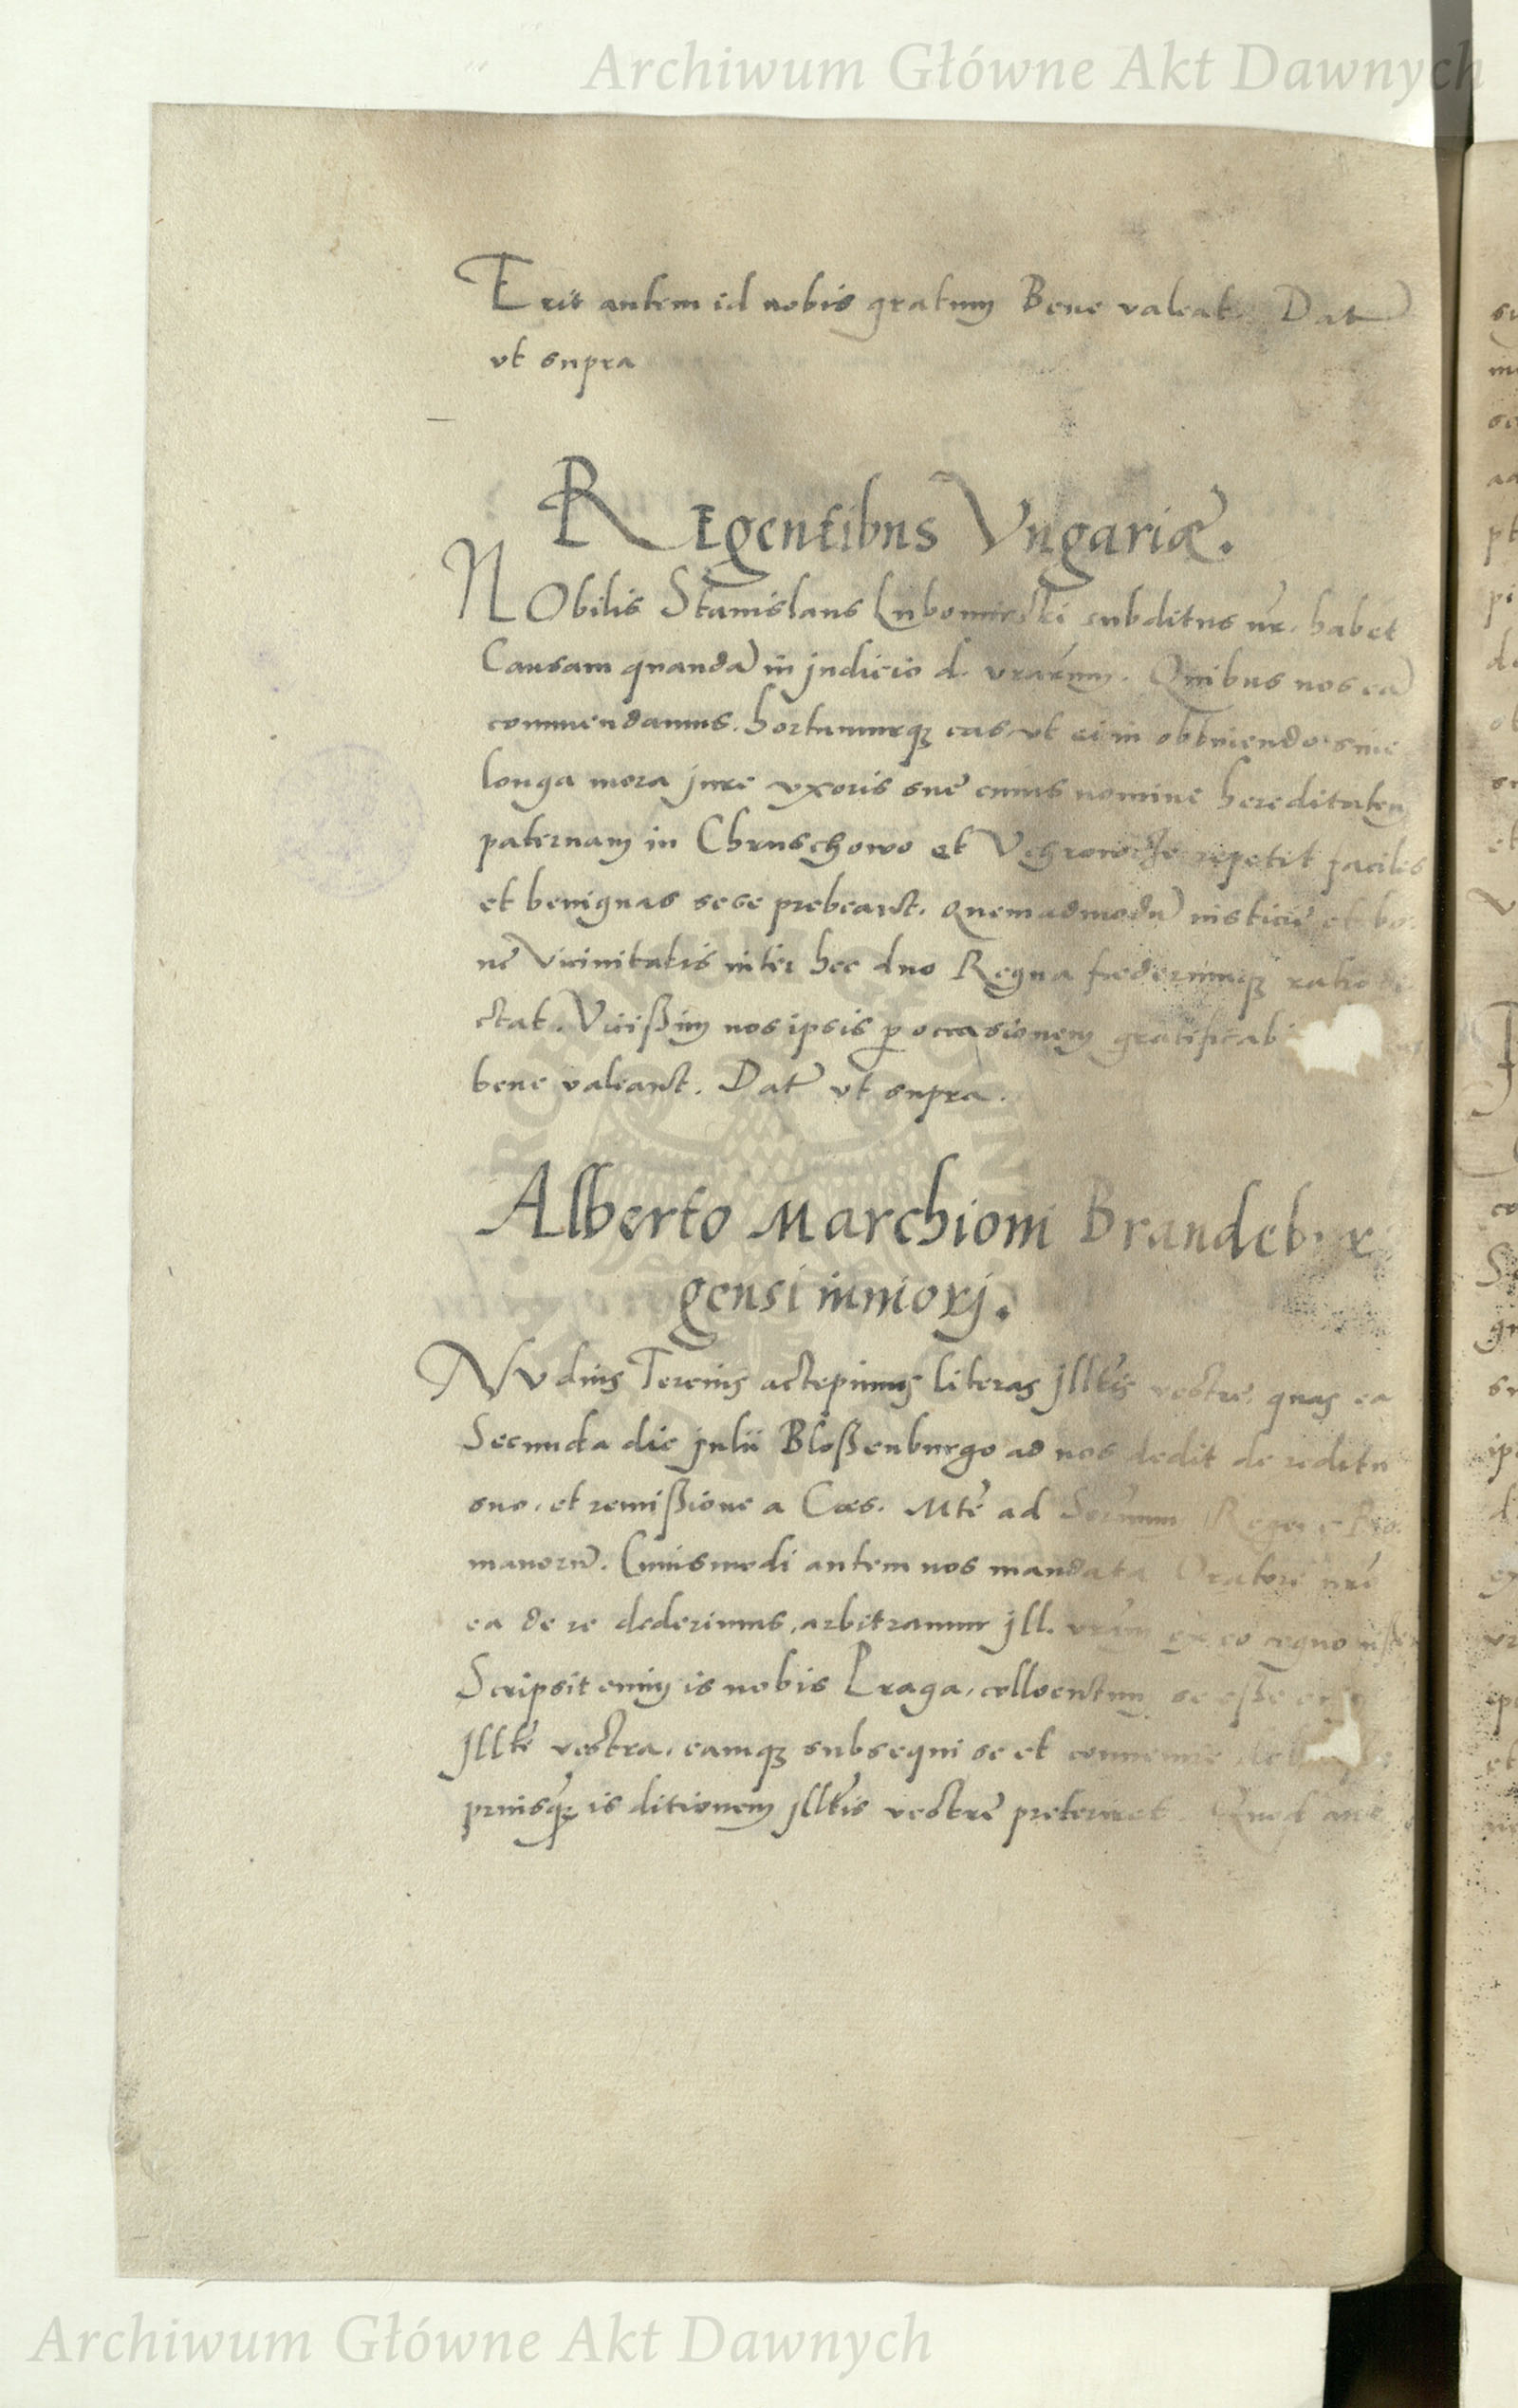 Archiwum Główne Akt Dawnych
Erit autem id nobis gratum Bene valeat. Dat
vt supra
REgentibus Vngariæ.
NObilis Stanislaus Lubomirski subditus nr. habet
Causam quandã in judicio d. vrarum. Quibus nos eã
commendamus. hortamurq3 eas, vt ei in obtinendo sine
longa mora jure vxoris suę cuius nomine hereditatem
paternam in Chruschowo et repetit faciles
et benignas sese prebeant. quemadmodũ iusticię et bo-
nę Vicinitatis inter hec duo Regna federumq3 ratio
ctat. Vicißim nos ipsis p occasionem gratificabi
bene valeant. Dat vt supra.
Alberto Marchioni Brandebur
gensi iuniorj.
NVdius Tercius accepimus literas jlltis vestrę, quas ea
Secunda die julii Bloßenburgo ad nos dedit de reditu
suo, et remißione a Cæs. Mte ad Serenum Regem Ro-
manorũ. Cuiusmodi autem nos mandata Oratori nro
ea de re dederimus, arbitramur jll. vram ex eo cognouiße
Scripsit enim is nobis Praga, collocutum se eße cum
jllte vestra, eamq3 subsequi se et conuenire
priusq3 is ditionem jlltis vestrę preteriret. Quod
Archiwum Główne Akt Dawnych